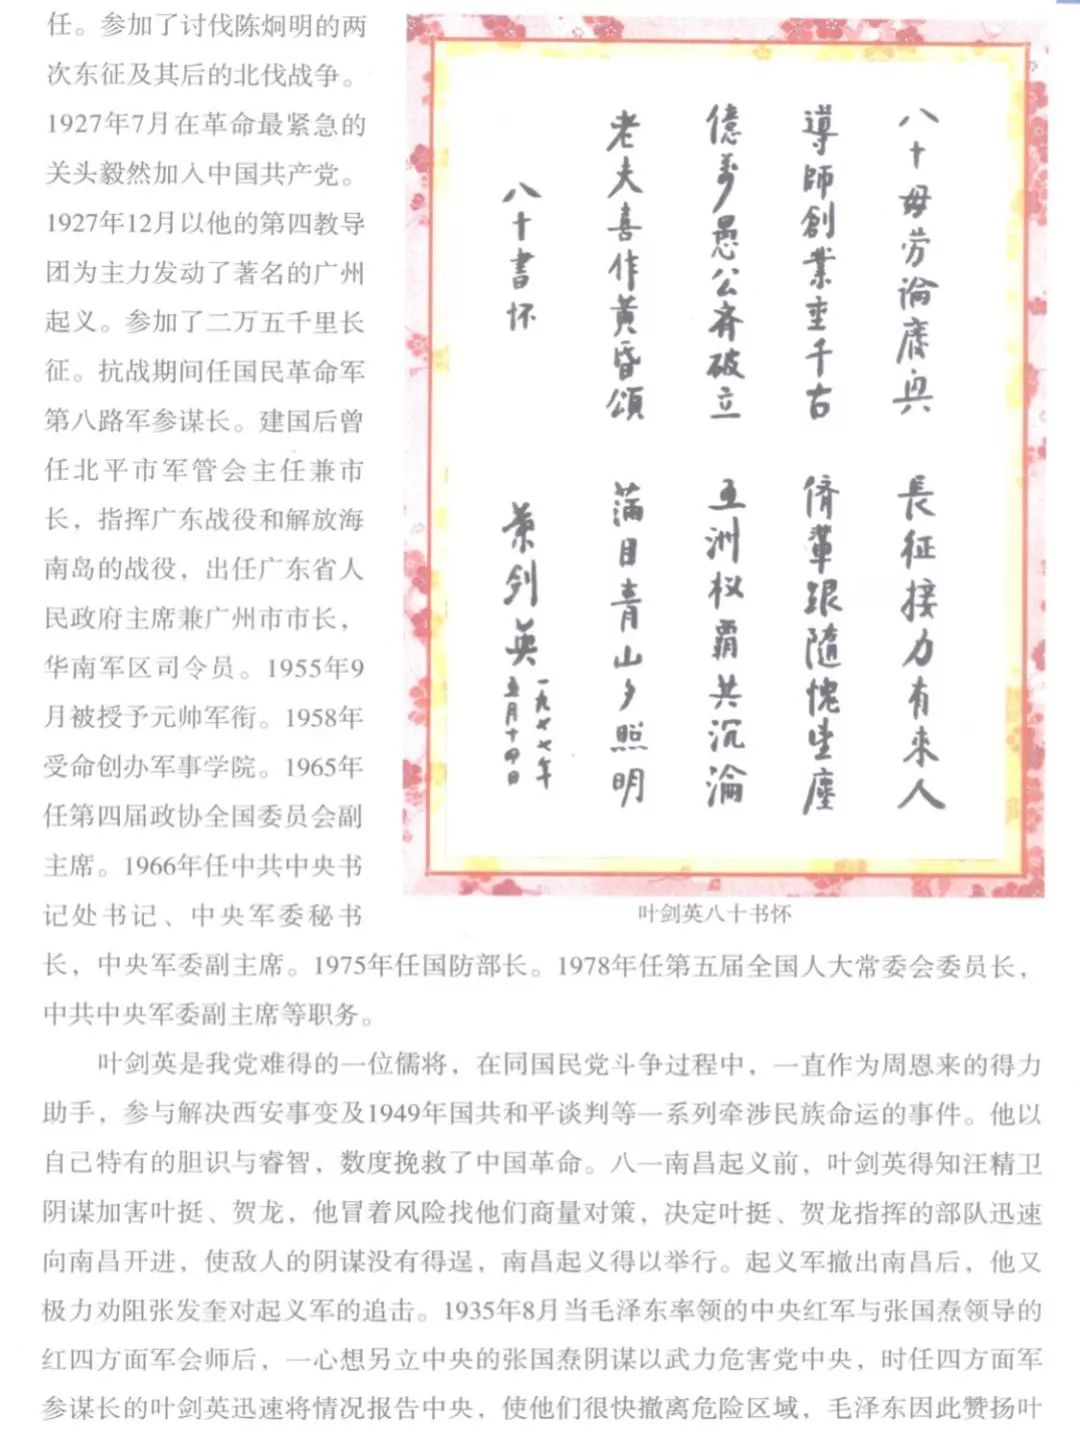 任。参加了讨伐陈炯明的两
次东征及其后的北伐战争。
1927年7月在革命最紧急的
关头毅然加入中国共产党。
1927年12月以他的第四教导
团为主力发动了著名的广州
起义。参加了二万五千里长
征。抗战期间任国民革命军
第八路军参谋长。建国后曾
任北平市军管会主任兼市
长，指挥广东战役和解放海
南岛的战役，出任广东省人
民政府主席兼广州市市长，
华南军区司令员。1955年9
月被授予元帅军衔。1958年
受命创办军事学院。1965年
任第四届政协全国委员会副
主席。1966年任中共中央书
记处书记、中央军委秘书
长，中央军委副主席。1975年任国防部长。1978年任第五届全国人大常委会委员长，
中共中央军委副主席等职务。
八十毋劳論廢興 長征接力有來人
導師創業垂千古 儕輩跟隨愧望塵
億萬愚公齐破立 五洲权霸共沉淪
老夫喜作黄昏頌 滿目青山夕照明
八十書怀 葉剑英 一九七七年
五月十四日
叶剑英八十书怀
叶剑英是我党难得的一位儒将，在同国民党斗争过程中，一直作为周恩来的得力
助手，参与解决西安事变及1949年国共和平谈判等一系列牵涉民族命运的事件。他以
自己特有的胆识与睿智，数度挽救了中国革命。八一南昌起义前，叶剑英得知汪精卫
阴谋加害叶挺、贺龙，他冒着风险找他们商量对策，决定叶挺、贺龙指挥的部队迅速
向南昌开进，使敌人的阴谋没有得逞，南昌起义得以举行。起义军撤出南昌后，他又
极力劝阻张发奎对起义军的追击。1935年8月当毛泽东率领的中央红军与张国焘领导的
红四方面军会师后，一心想另立中央的张国焘阴谋以武力危害党中央，时任四方面军
参谋长的叶剑英迅速将情况报告中央，使他们很快撤离危险区域，毛泽东因此赞扬叶